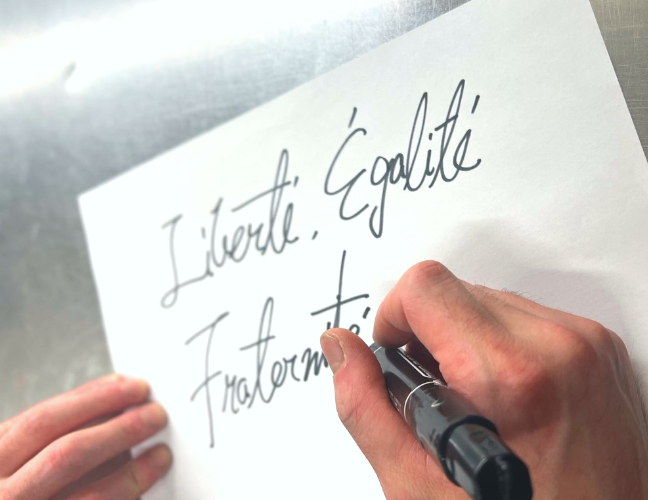 Liberté, Égalité
Fraternité